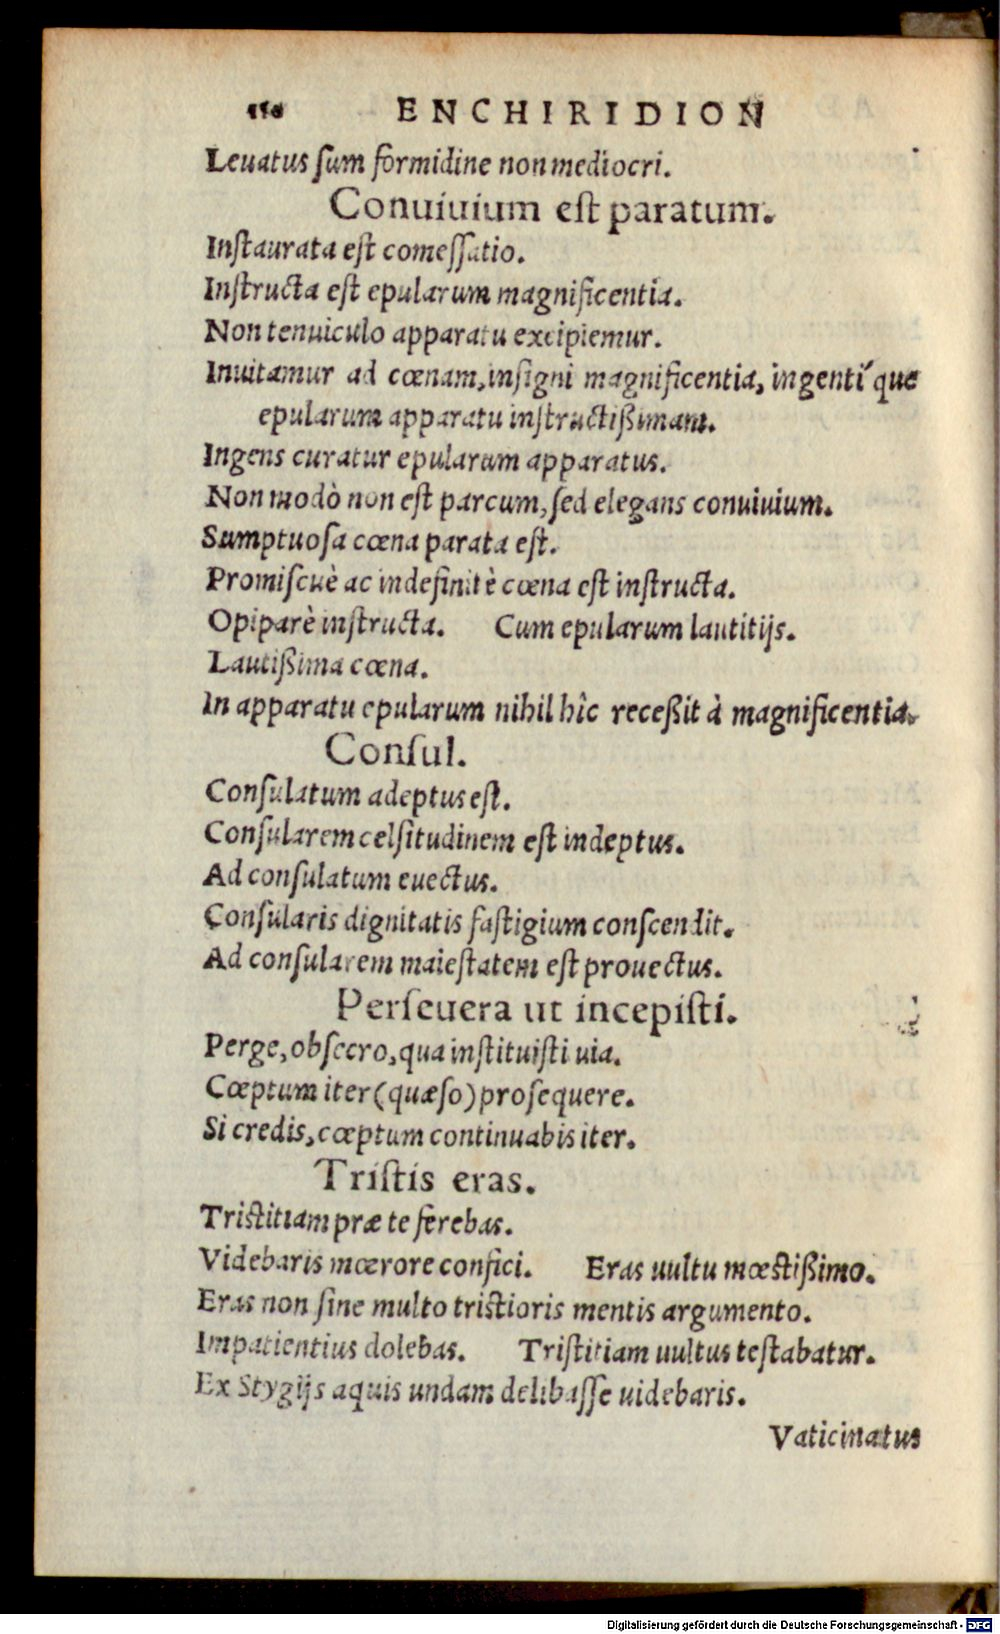 ENCHIRIDION
Leuatus ſum formidine non mediocri.
Conuiuium eſt paratum.
Inſtaurata eſt comeſſatio.
Inſtructa eſt epularum magnificentia.
Non tenuiculo apparatu excipiemur.
Inuitamur ad cœnam, inſigni magnificentia, ingentíque
epularum apparatu inſtructißimam.
Ingens curatur epularum apparatus.
Non modò non eſt parcum, ſed elegans conuiuium.
Sumptuoſa cœna parata eſt.
Promiſcuè ac indefinitè cœna eſt inſtructa.
Opiparè inſtructa. Cum epularum lautitijs.
Lautißima cœna.
In apparatu epularum nihil hîc receßit à magnificentia.
Conſul.
Conſulatum adeptus eſt.
Conſularem celſitudinem eſt indeptus.
Ad conſulatum euectus.
Conſularis dignitatis faſtigium conſcendit.
Ad conſularem maieſtatem eſt prouectus.
Perſeuera ut incepiſti.
Perge, obſecro, qua inſtituiſti uia.
Cœptum iter (quæſo) proſequere.
Si credis, cœptum continuabis iter.
Triſtis eras.
Triſtitiam præ te ferebas.
Videbaris mœrore confici. Eras uultu mœſtißimo.
Eras non ſine multo triſtioris mentis argumento.
Impatientius dolebas. Triſtitiam uultus teſtabatur.
Ex Stygijs aquis undam delibaſſe uidebaris.
Vaticinatus
Digitalisierung gefördert durch die Deutsche Forschungsgemeinschaft - DFG